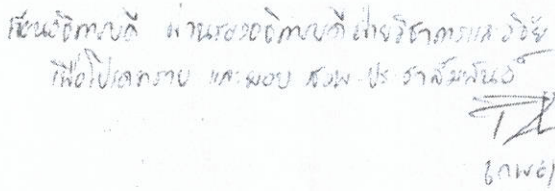 เรียนอธิการบดี ผ่านรองอธิการบดีฝ่ายวิชาการและวิจัย
เพื่อโปรดทราบ และมอบ สวพ. ประชาสัมพันธ์